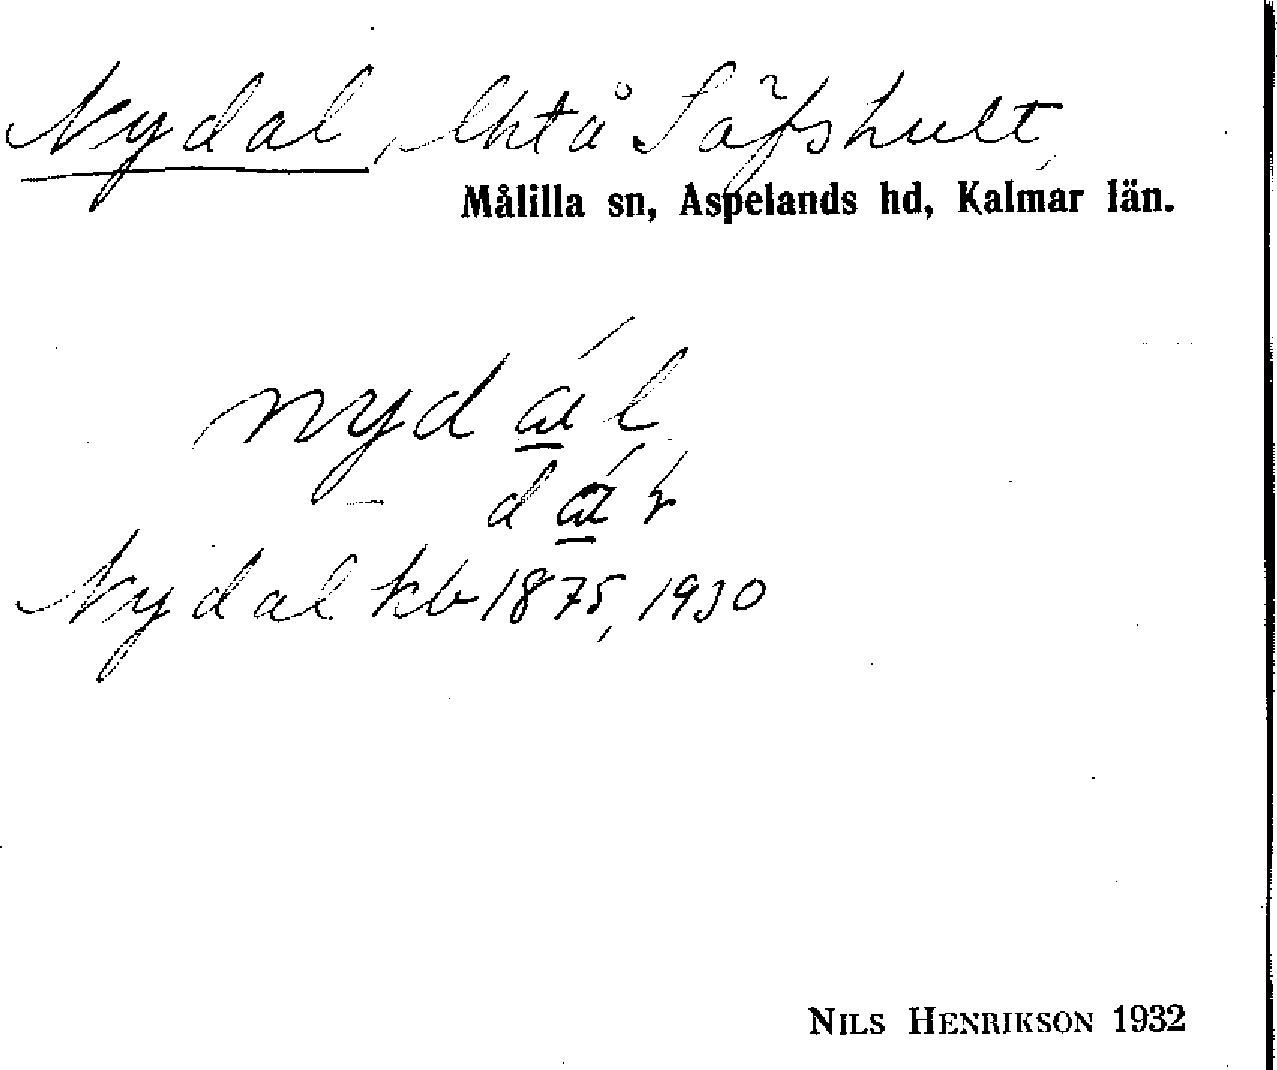 Nydal, lht å Säfshult,
Målilla sn, Aspelands hd, Kalmar län.
nydál
– dát
Nydal kb 1875, 1930
NILS HENRIKSON 1932